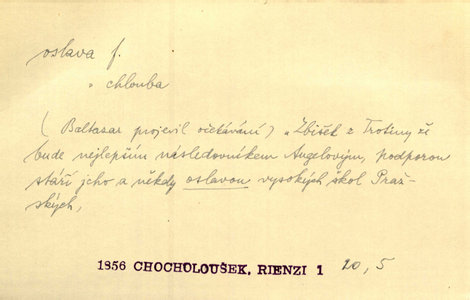 oslava f.
„ chlouba
(Baltazar projevil očekávání) „Zbišek z Trotiny že
bude nejlepším následovníkem Angelovým, podporou
stáří jeho a někdy oslavou vysokých škol Praž-
ských,
1856 CHOCHOLOUŠEK, RIENZI 1 20, 5